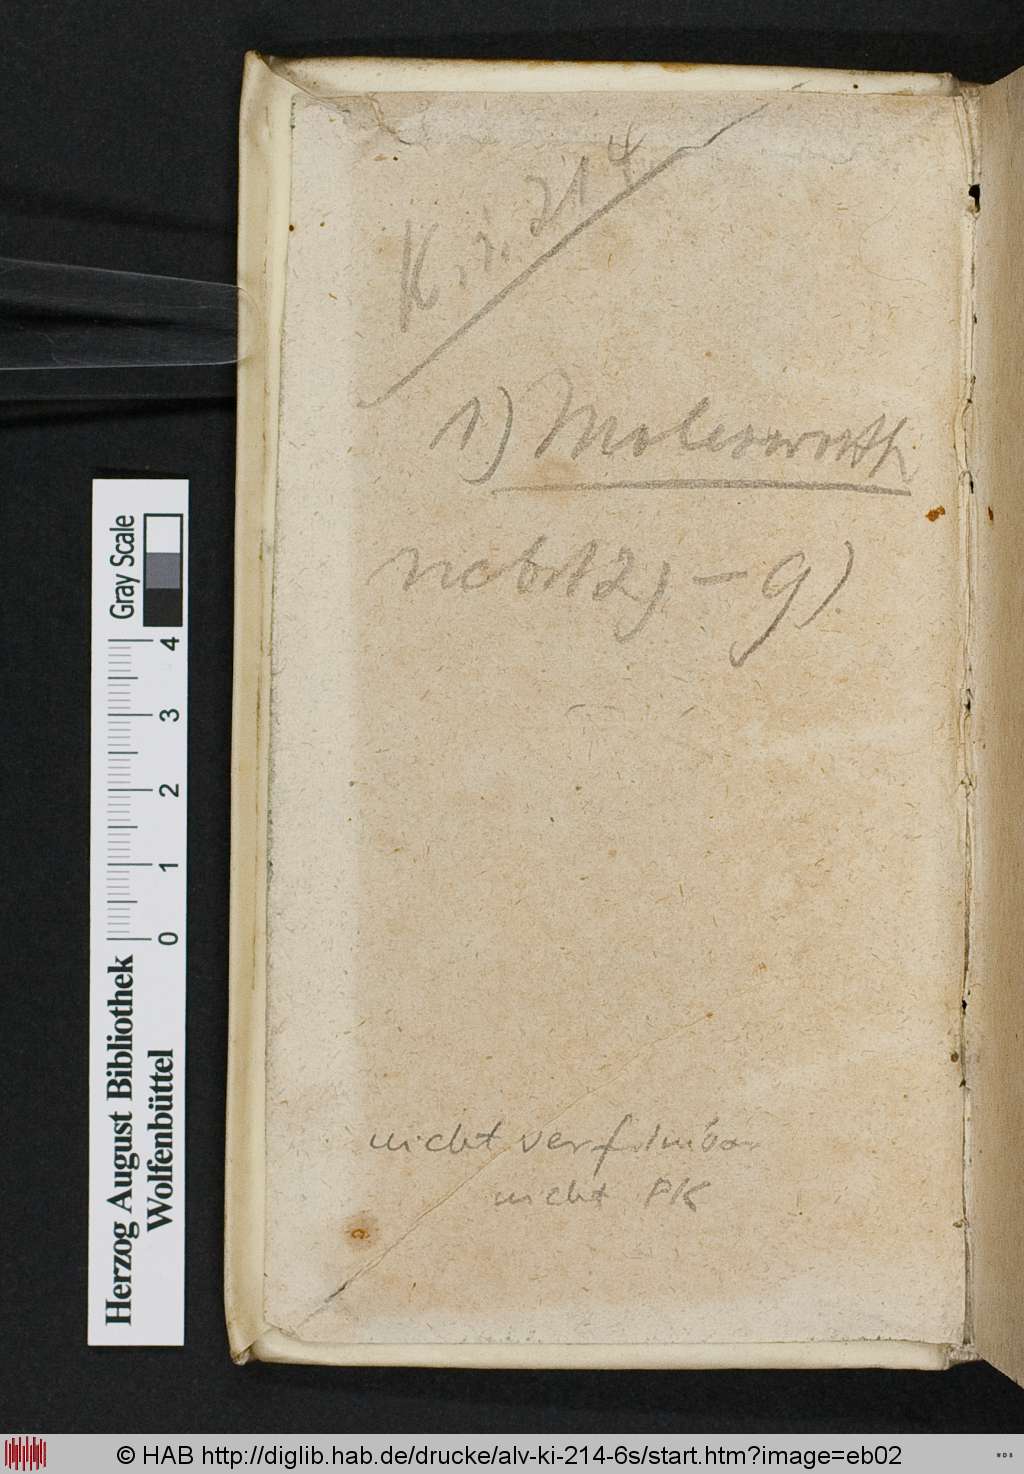 K, i, 214
1) Molesworth
nebst 2) – 9)
nicht verfilmbar
nicht PK
Gray Scale
0 1 2 3 4
Herzog August Bibliothek
Wolfenbüttel
© HAB http://diglib.hab.de/drucke/alv-ki-214-6s/start.htm?image=eb02